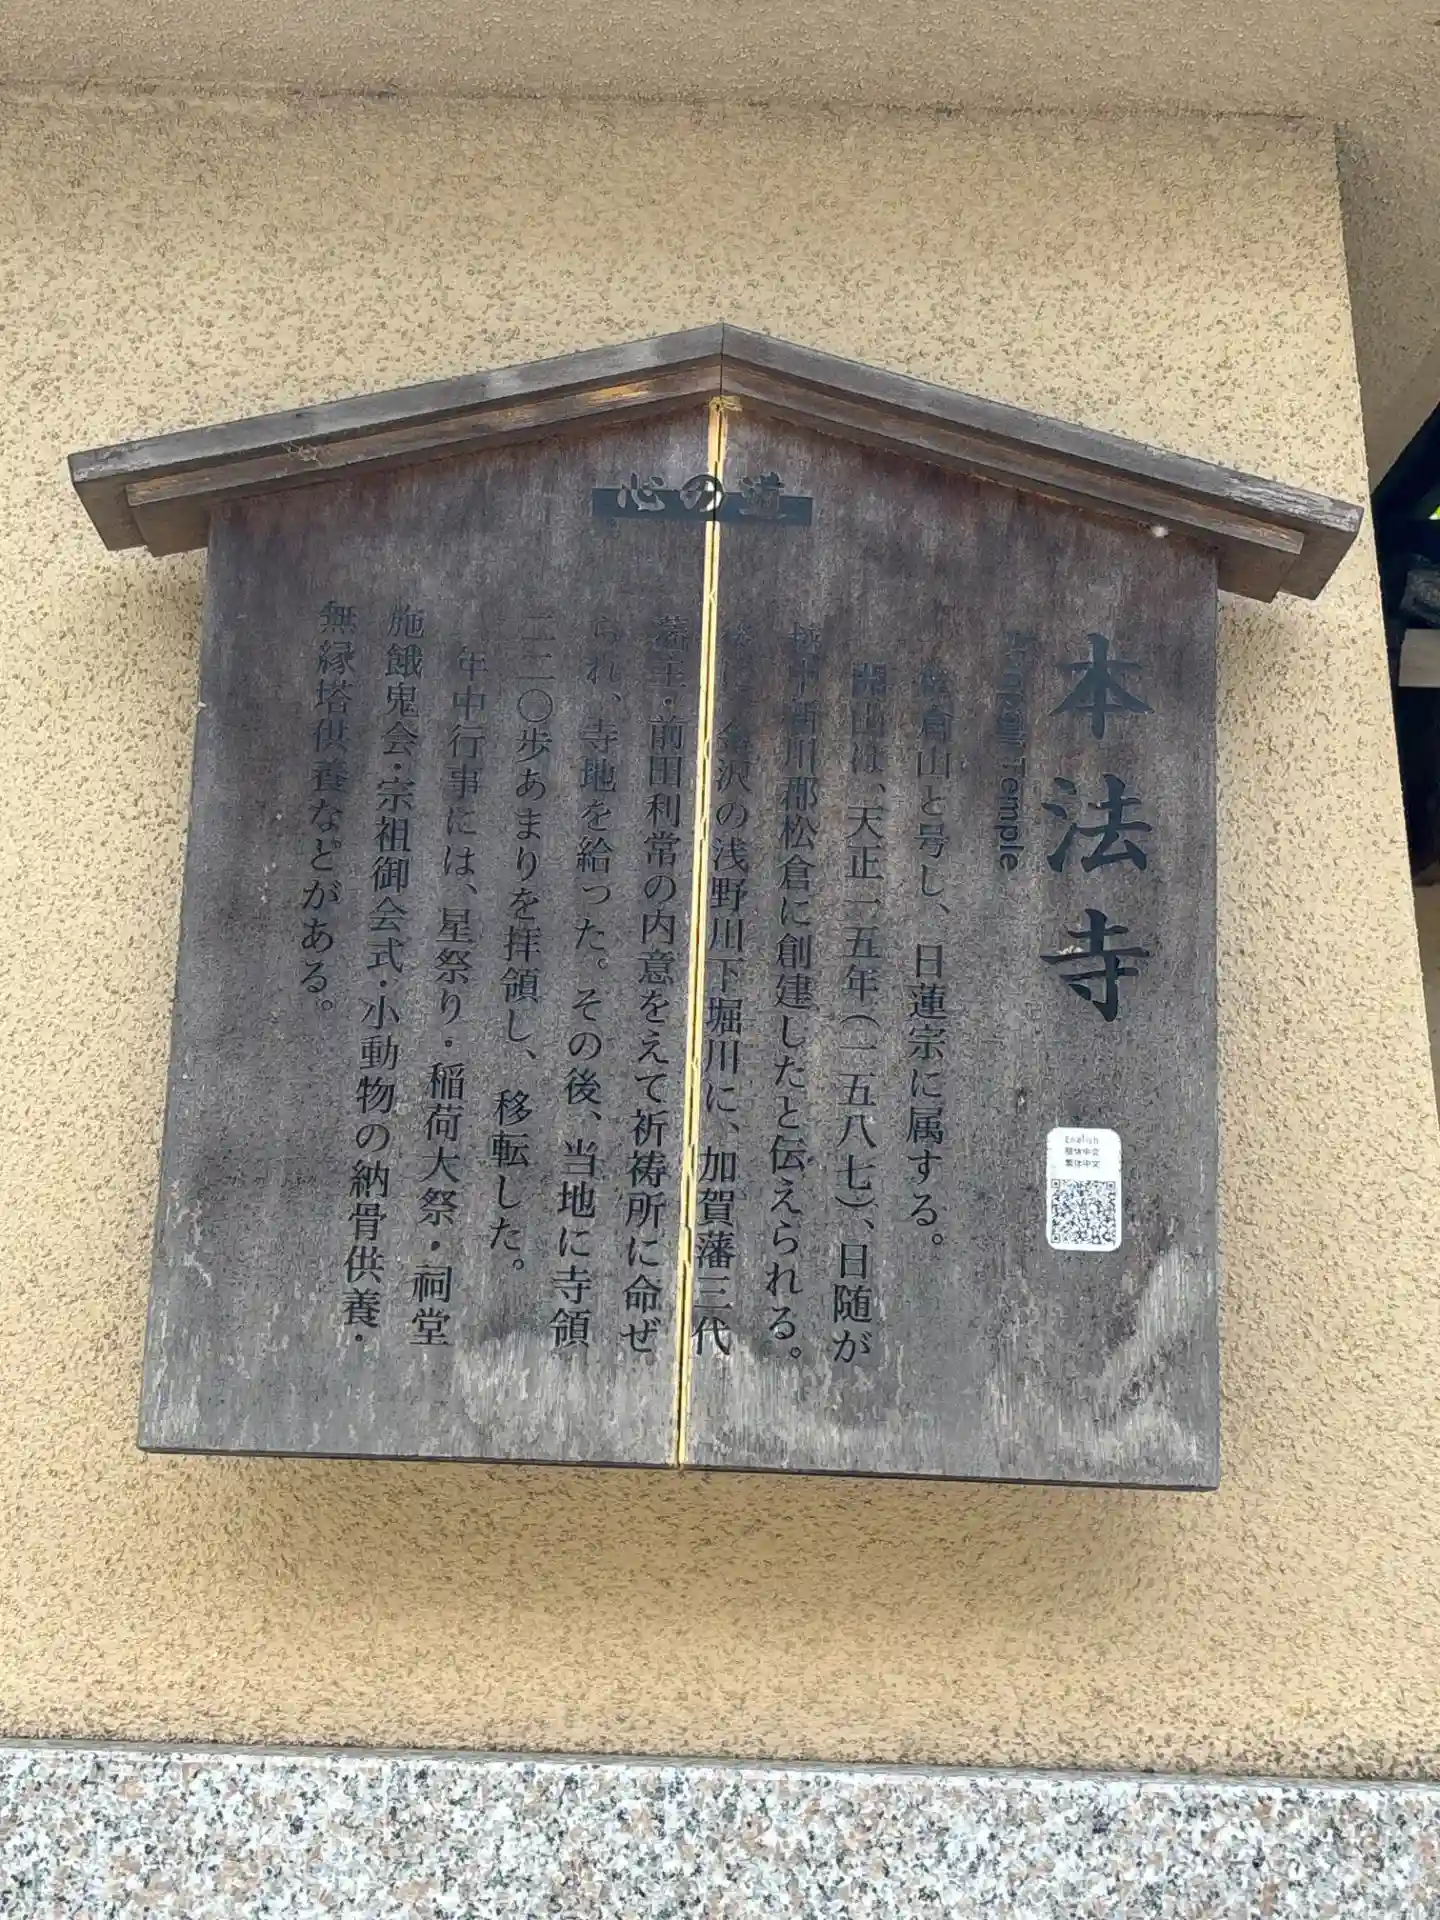 心の道
本法寺
Honpoji Temple
松倉山と号し、日蓮宗に属する。
開山は、天正一五年(一五八七)、日随が
越中新川郡松倉に創建したと伝えられる。
後に、金沢の浅野川下堀川に、加賀藩三代
藩主・前田利常の内意をえて祈祷所に命ぜ
られ、寺地を給った。その後、当地に寺領
二二〇歩あまりを拝領し、移転した。
年中行事には、星祭り・稲荷大祭・祠堂
施餓鬼会・宗祖御会式・小動物の納骨供養・
無縁塔供養などがある。
English
簡体中文
繁体中文